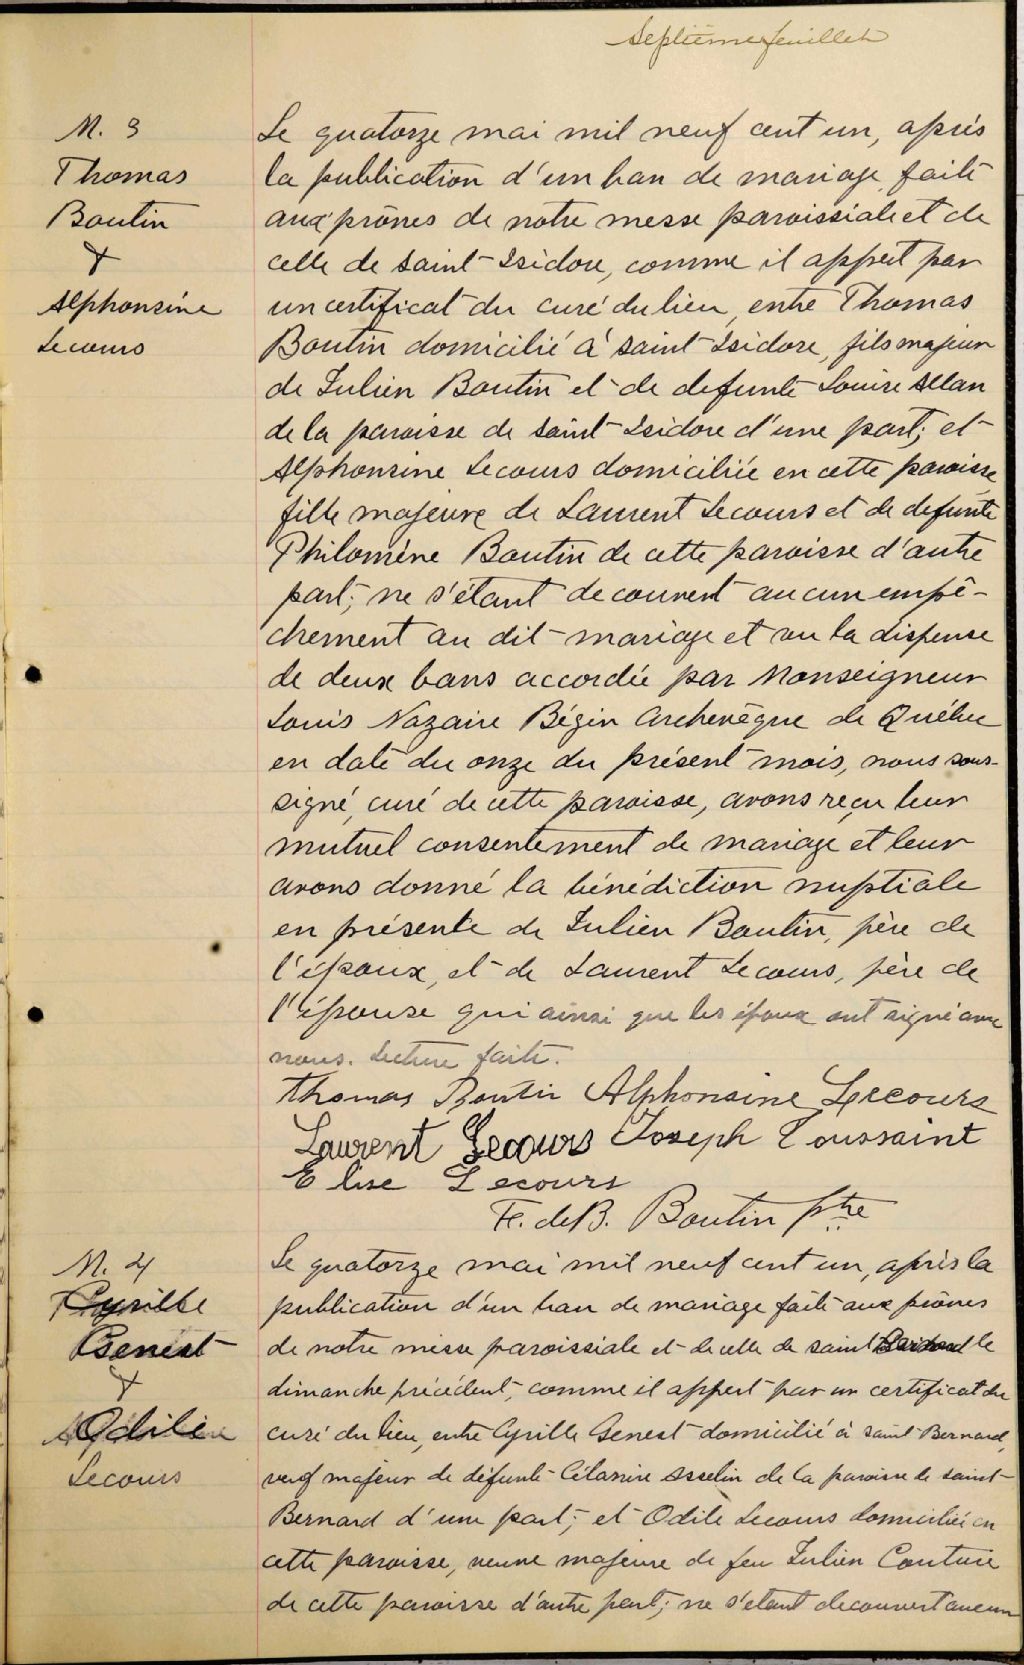 Septième feuillet
M. 3
Thomas
Boutin
&
Alphonsine
Lecours
Le quatorze mai mil neuf cent un, après
la publication d'un ban de mariage faite
aux prônes de notre messe paroissiale et de
celle de Saint-Isidore, comme il appert par
un certificat du curé du lieu, entre Thomas
Boutin domicilié à Saint-Isidore, fils majeur
de Julien Boutin et de defunte Louise Allan
de la paroisse de Saint-Isidore d'une part; et
Alphonsine Lecours domiciliée en cette paroisse
fille majeure de Laurent Lecours et de defunte
Philomène Boutin de cette paroisse d'autre
part; ne s'étant decouvert aucun empê-
chement au dit mariage et vu la dispense
de deux bans accordée par Monseigneur
Louis Nazaire Bégin Archevêque de Québec
en date du onze du présent mois, nous sous-
signé, curé de cette paroisse, avons reçu leur
mutuel consentement de mariage et leur
avons donné la bénédiction nuptiale
en présente de Julien Boutin, père de
l'époux, et de Laurent Lecours, père de
l'épouse qui ainsi que les époux ont signé avec
nous. Lecture faite.
Thomas Boutin Alphonsine Lecours
Laurent Lecours Joseph Toussaint
Elise Lecours
F. de B. Boutin ptre
M. 4
Cyrille
Genest
&
Odile
Lecours
Le quatorze mai mil neuf cent un, après la
publication d'un ban de mariage faite aux prônes
de notre messe paroissiale et de celle de Saint Bernard le
dimanche précédent, comme il appert par un certificat du
curé du lieu, entre Cyrille Genest domicilié à Saint-Bernard,
veuf majeur de défunte Célanire Asselin de la paroisse de Saint-
Bernard d'une part; et Odile Lecours domiciliée en
cette paroisse, veuve majeure de feu Julien Couture
de cette paroisse d'autre part; ne s'étant decouvert aucun